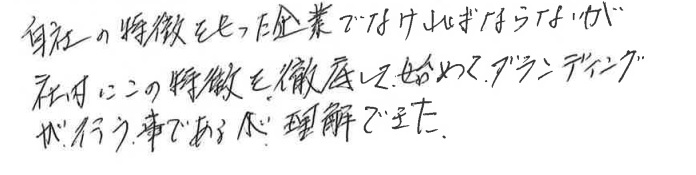 自社の特徴をもった企業でなければならないが
社内にこの特徴を、徹底して、始めて、ブランディング
が、行う、事であるが、理解できた、